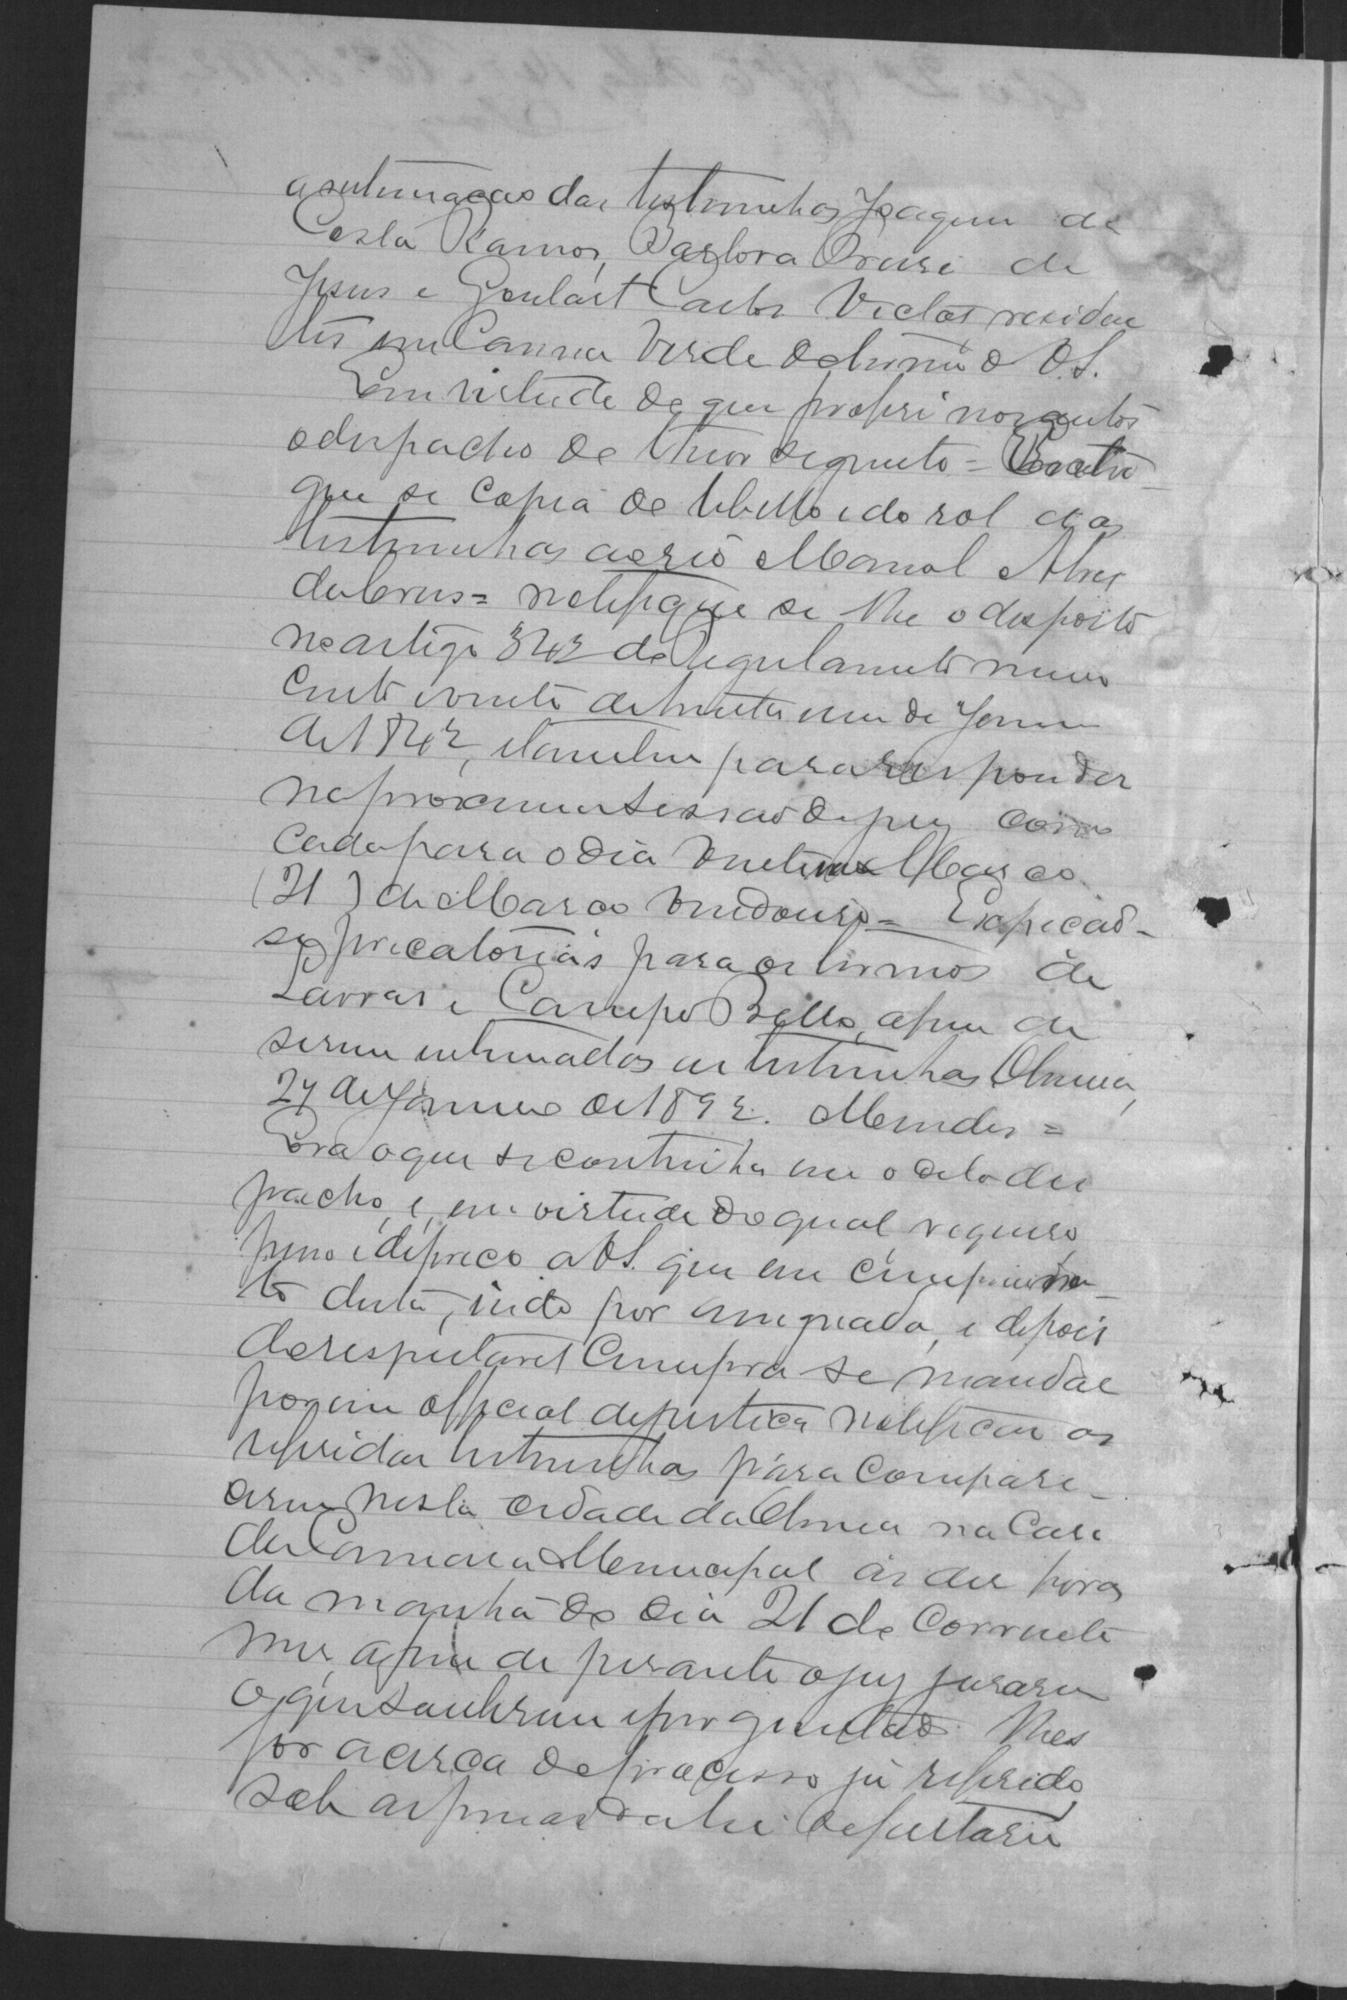 a intimação das testemunhas Joaquim da
Costa Ramos, Barbora Maria de
Jesus e Goulart Carlos Victor residen
tes em Canna Verde do termo d V.S.
Em virtude do que proferi nos autos
o despacho do theor seguinte = Entre-
gue se copia do libello e do rol das
testemunhas ao reo Manoel Alves
da Cruz = notefique se lhe o desposto
no artigo 342 do Regulamento numero
cento e vinte de trinta um de Janeiro
de 1842, e tambem para responder
na proxima sessão do jury convo
cada para o dia vinte um Março
(21) de Março vindouro = Expeção-
se precatorias para os termos de
Lavras e Campo Bello, afim de
serem intimados as testemunhas Oliveira,
27 de Janeiro de 1892. Mendes =
Era o que se continha em o dito des
pacho, e, em virtude do qual requeiro,
peço e depreco a V.S. que em cumprimen-
to desta, indo por mim assignada, e depois
do respeitavel Cumpra-se mandar
por um official de justiça notificar as
referidas testemunhas para compare-
cerem nesta cidade da Oliveira na Casa
da Camara Municipal ás dez horas
da manhã do dia 21 do corrente
mez, afim de perante o jury jurarem
o que souberem e perguntado lhes
for acerca do processo já referido,
sob as penas da lei de faltarem